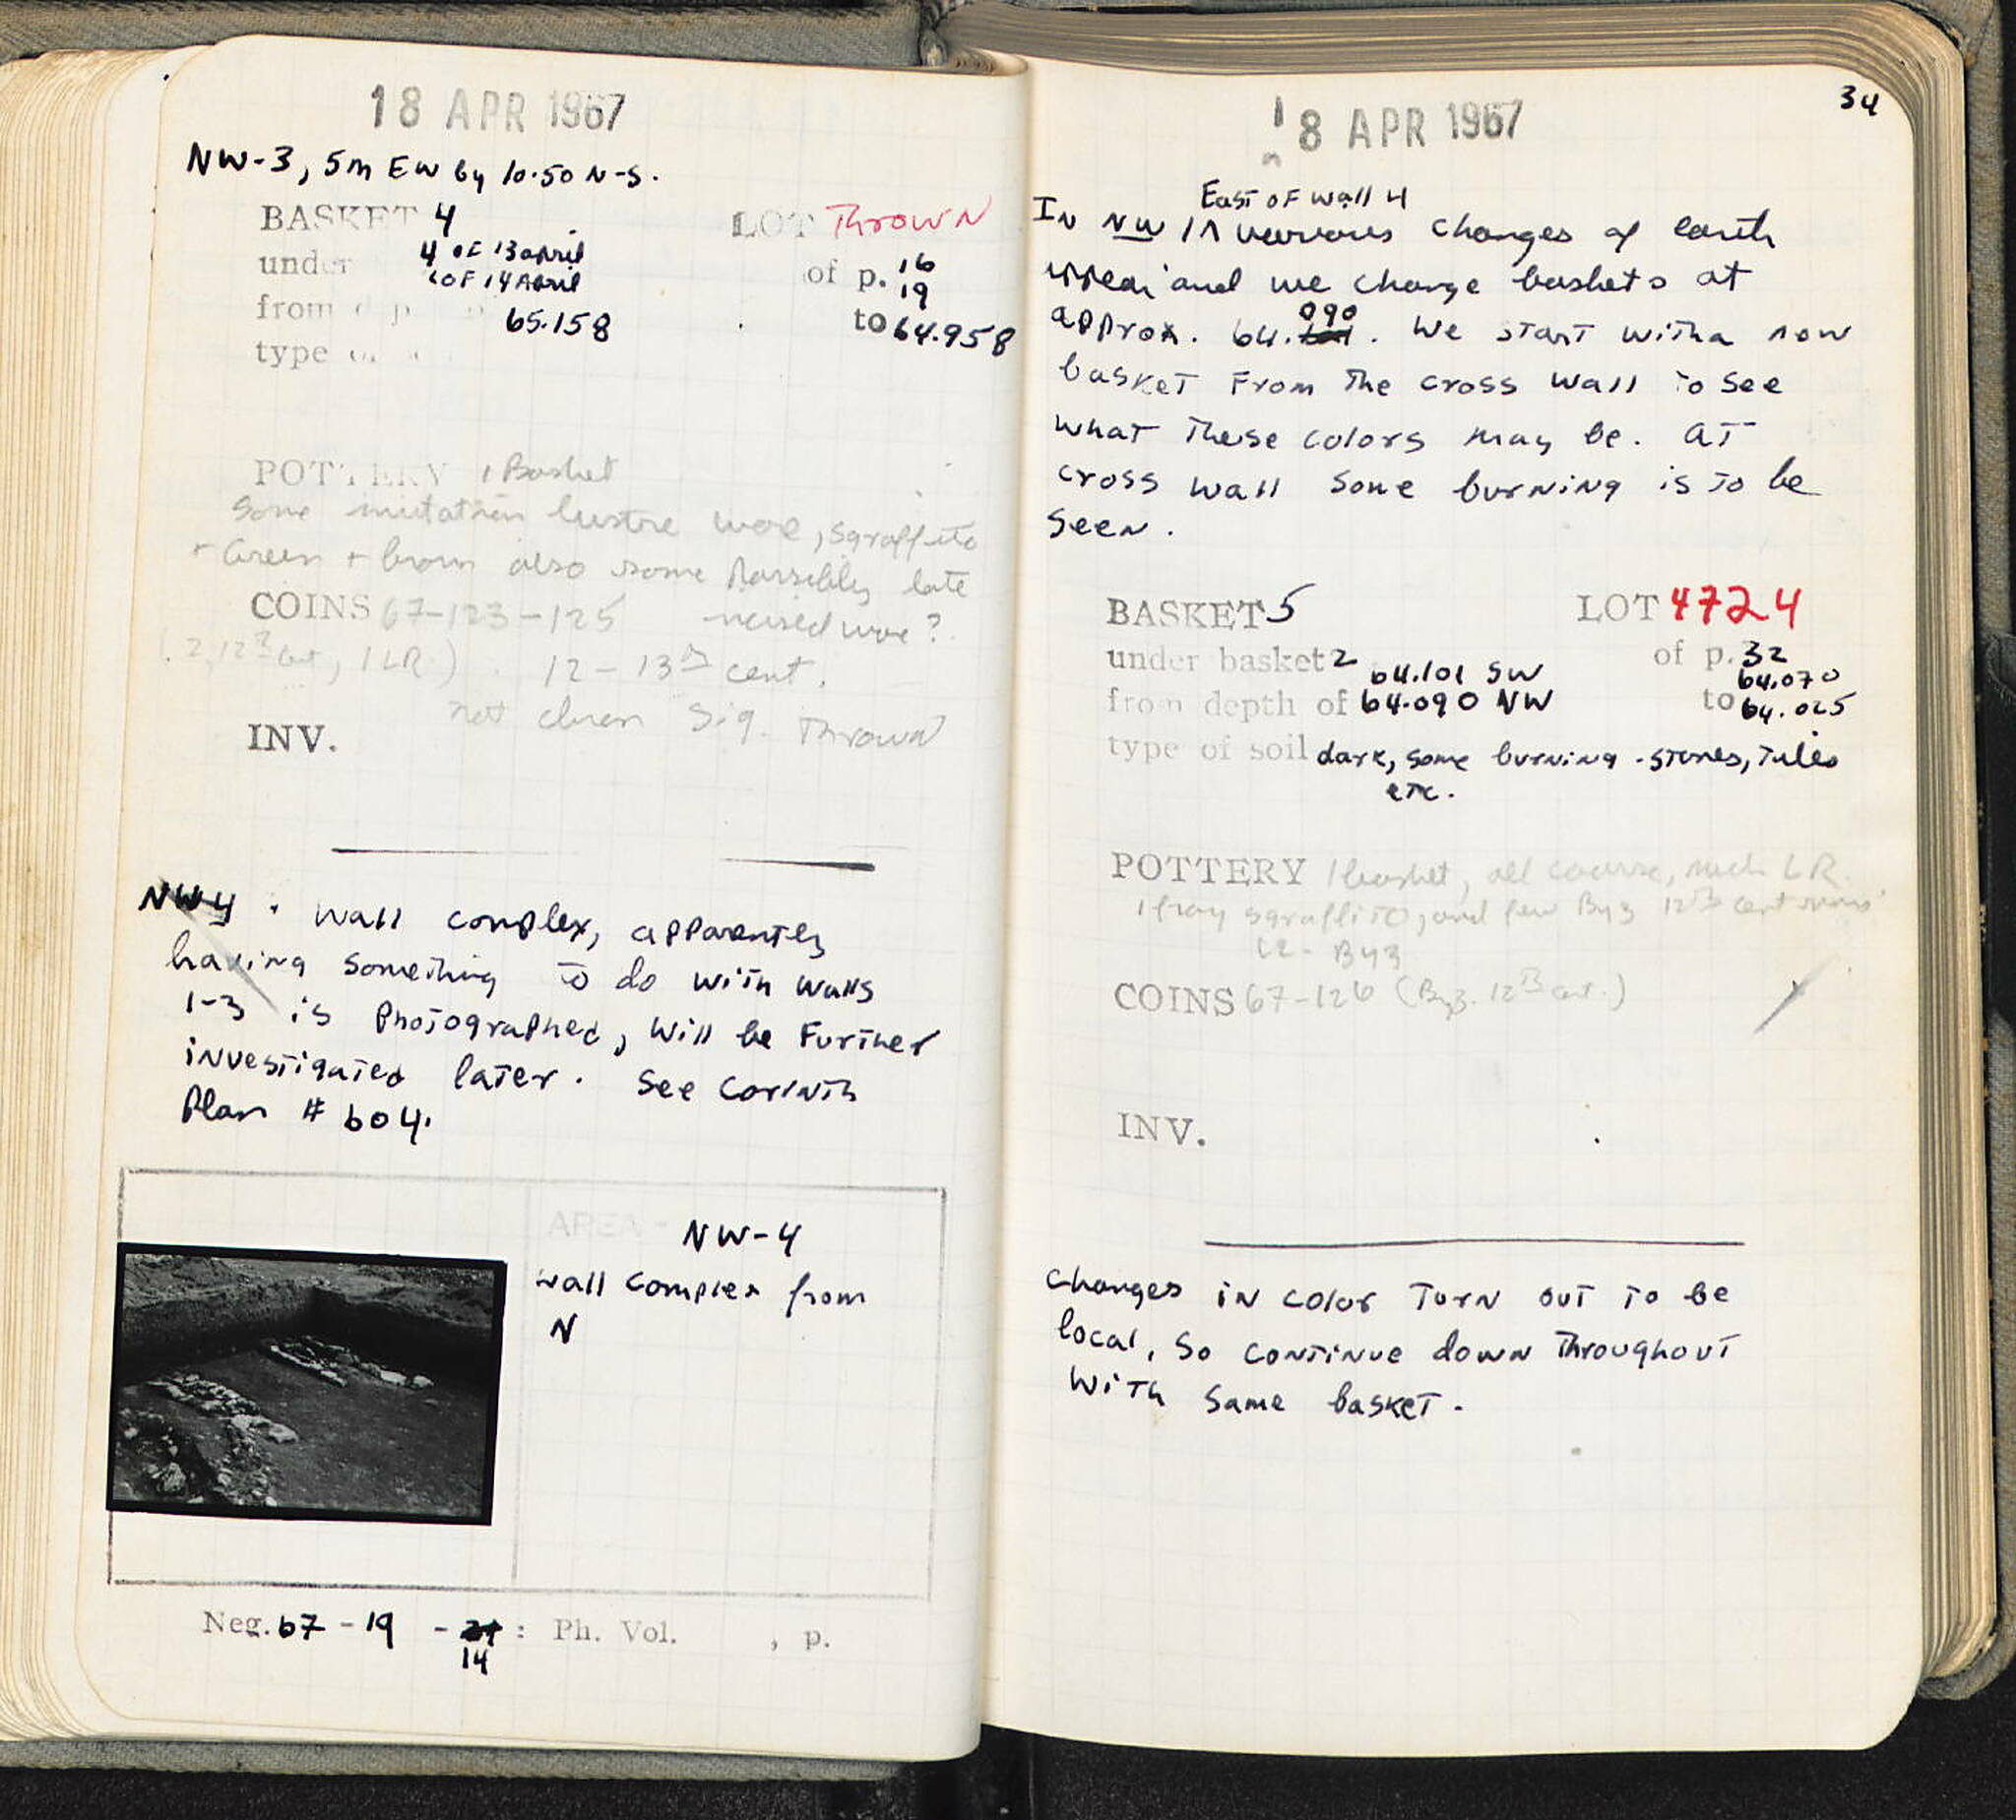 18 APR 1967
NW-3, 5m EW by 10.50 N-S.
BASKET 4 LOT Thrown
under 4 OF 13 april of p. 16
1 OF 14 April 19
from d p 65.158 to 64.958
type o
POTTERY 1 Basket
Some imitation lustre ware, sgraffito
+ Green + brown also some possibly late
COINS 67-123-125 incised ware?
(2, 12th cent, 1 LR) 12-13th cent.
not chron sig. Thrown
INV.
NW4. Wall complex, apparently
having something to do with walls
1-3 is photographed, will be further
investigated later. See Corinth
Plan # 604.
AREA - NW-4
wall complex from
N
Neg. 67 - 19 - 21 : Ph. Vol. , p.
14
34
18 APR 1967
East of wall 4
In NW 1 various changes of earth
appear and we change baskets at
090
approx. 64.101. We start with a new
basket from the cross wall to see
what these colors may be. At
cross wall some burning is to be
seen.
BASKET 5 LOT 4724
under basket 2 of p. 32
64.101 SW 64.070
from depth of 64.090 NW to 64.025
type of soil dark, some burning - stones, tiles
etc.
POTTERY 1 basket, all coarse, much LR.
1 frag sgraffito, and few Byz 12th cent
LR - Byz
COINS 67-126 (Byz. 12th cent.)
INV.
Changes in color turn out to be
local, so continue down throughout
with same basket.